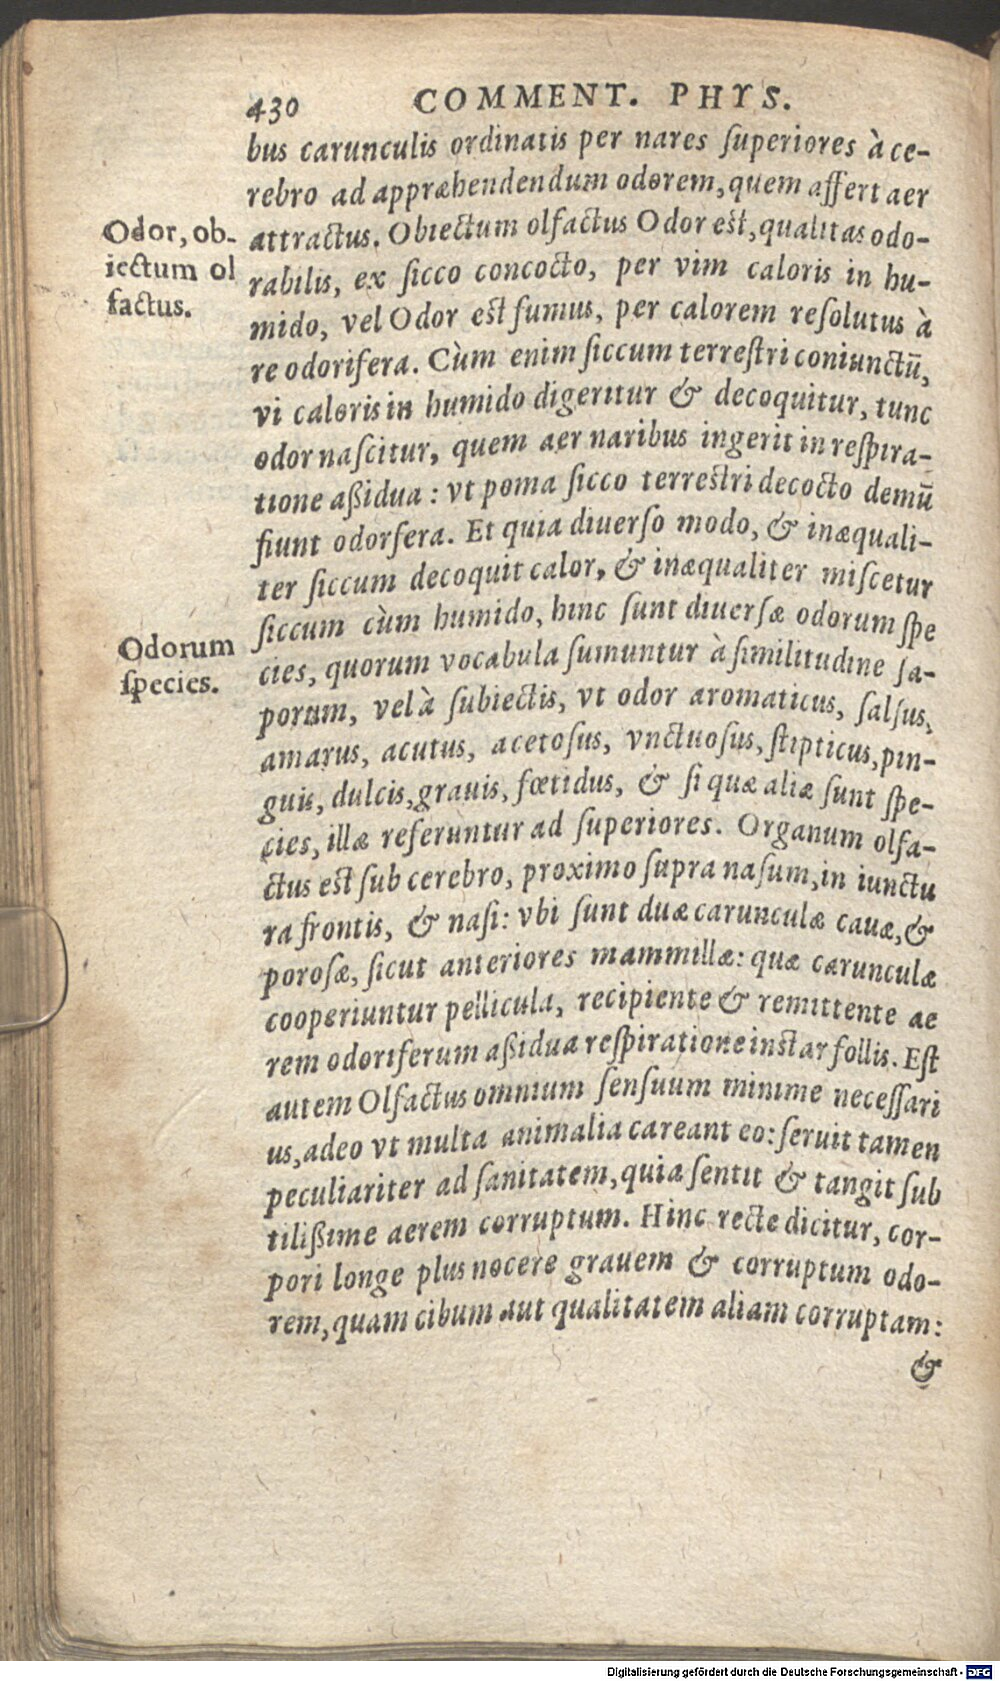 430 COMMENT. PHYS.
bus carunculis ordinatis per nares ſuperiores à ce-
rebro ad appræhendendum odorem, quem affert aer
attractus. Obiectum olfactus Odor est, qualitas odo-
rabilis, ex ſicco concocto, per vim caloris in hu-
mido, vel Odor est fumus, per calorem reſolutus à
re odorifera. Cùm enim ſiccum terreſtri coniunctū,
vi caloris in humido digeritur & decoquitur, tunc
odor naſcitur, quem aer naribus ingerit in reſpira-
tione aßidua : vt poma ſicco terrestri decocto demū
fiunt odorfera. Et quia diuerſo modo, & inæquali-
ter ſiccum decoquit calor, & inæqualiter miſcetur
ſiccum cùm humido, hinc ſunt diuerſæ odorum ſpe
cies, quorum vocabula ſumuntur à ſimilitudine ſa-
porum, vel à ſubiectis, vt odor aromaticus, ſalſus,
amarus, acutus, acetoſus, vnctuoſus, ſtipticus, pin-
guis, dulcis, grauis, fœtidus, & ſi quæ aliæ ſunt ſpe-
cies, illæ referuntur ad ſuperiores. Organum olfa-
ctus est ſub cerebro, proximo ſupra naſum, in iunctu
ra frontis, & naſi: vbi ſunt duæ carunculæ cauæ, &
poroſæ, ſicut anteriores mammillæ: quæ carunculæ
cooperiuntur pellicula, recipiente & remittente ae
rem odoriferum aßidua reſpiratione instar follis. Eſt
autem Olfactus omnium ſenſuum minime neceſſari
us, adeo vt multa animalia careant eo: ſeruit tamen
peculiariter ad ſanitatem, quia ſentit & tangit ſub
tilißime aerem corruptum. Hinc recte dicitur, cor-
pori longe plus nocere grauem & corruptum odo-
rem, quam cibum aut qualitatem aliam corruptam:
&
Odor, ob-
iectum ol
factus.
Odorum
ſpecies.
Digitalisierung gefördert durch die Deutsche Forschungsgemeinschaft - DFG